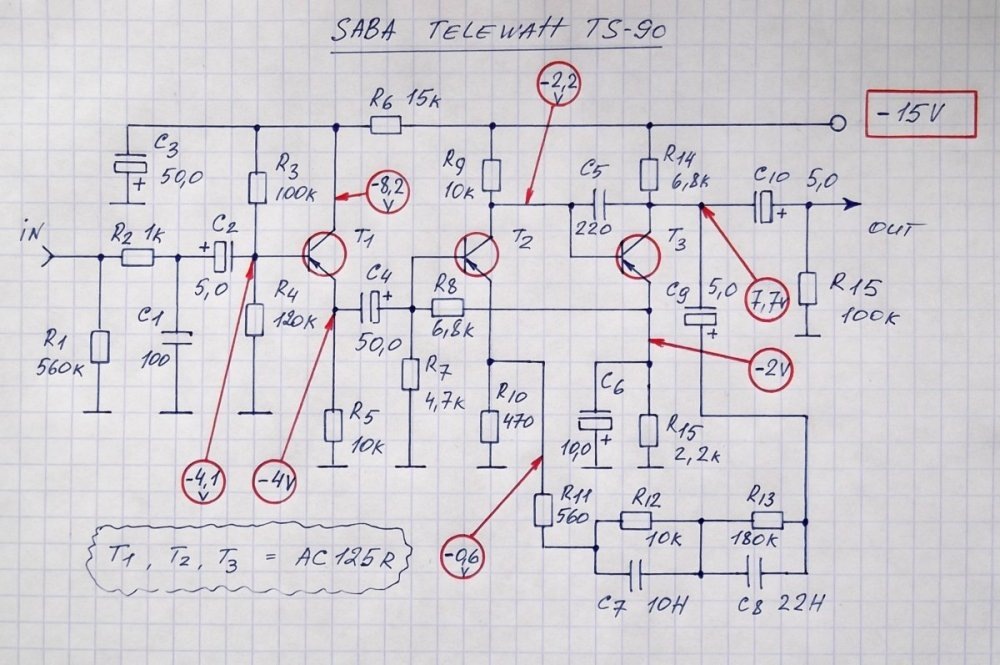 SABA TELEWATT TS-90
-2,2 V
R6 15K
-15V
C3 50,0
R3 100K
-8,2 V
R9 10K
C5 220
R14 6,8K
C10 5,0
iN
R2 1K
C2 5,0
T1
T2
T3
OUT
R1 560K
C1 100
R4 120K
C4 50,0
R8 6,8K
C9 5,0
7,7V
R15 100K
R7 4,7K
-2V
R5 10K
R10 470
C6 10,0
R15 2,2K
-4,1 V
-4V
-0,6 V
R11 560
R12 10K
R13 180K
T1, T2, T3 = AC125R
C7 10H
C8 22H